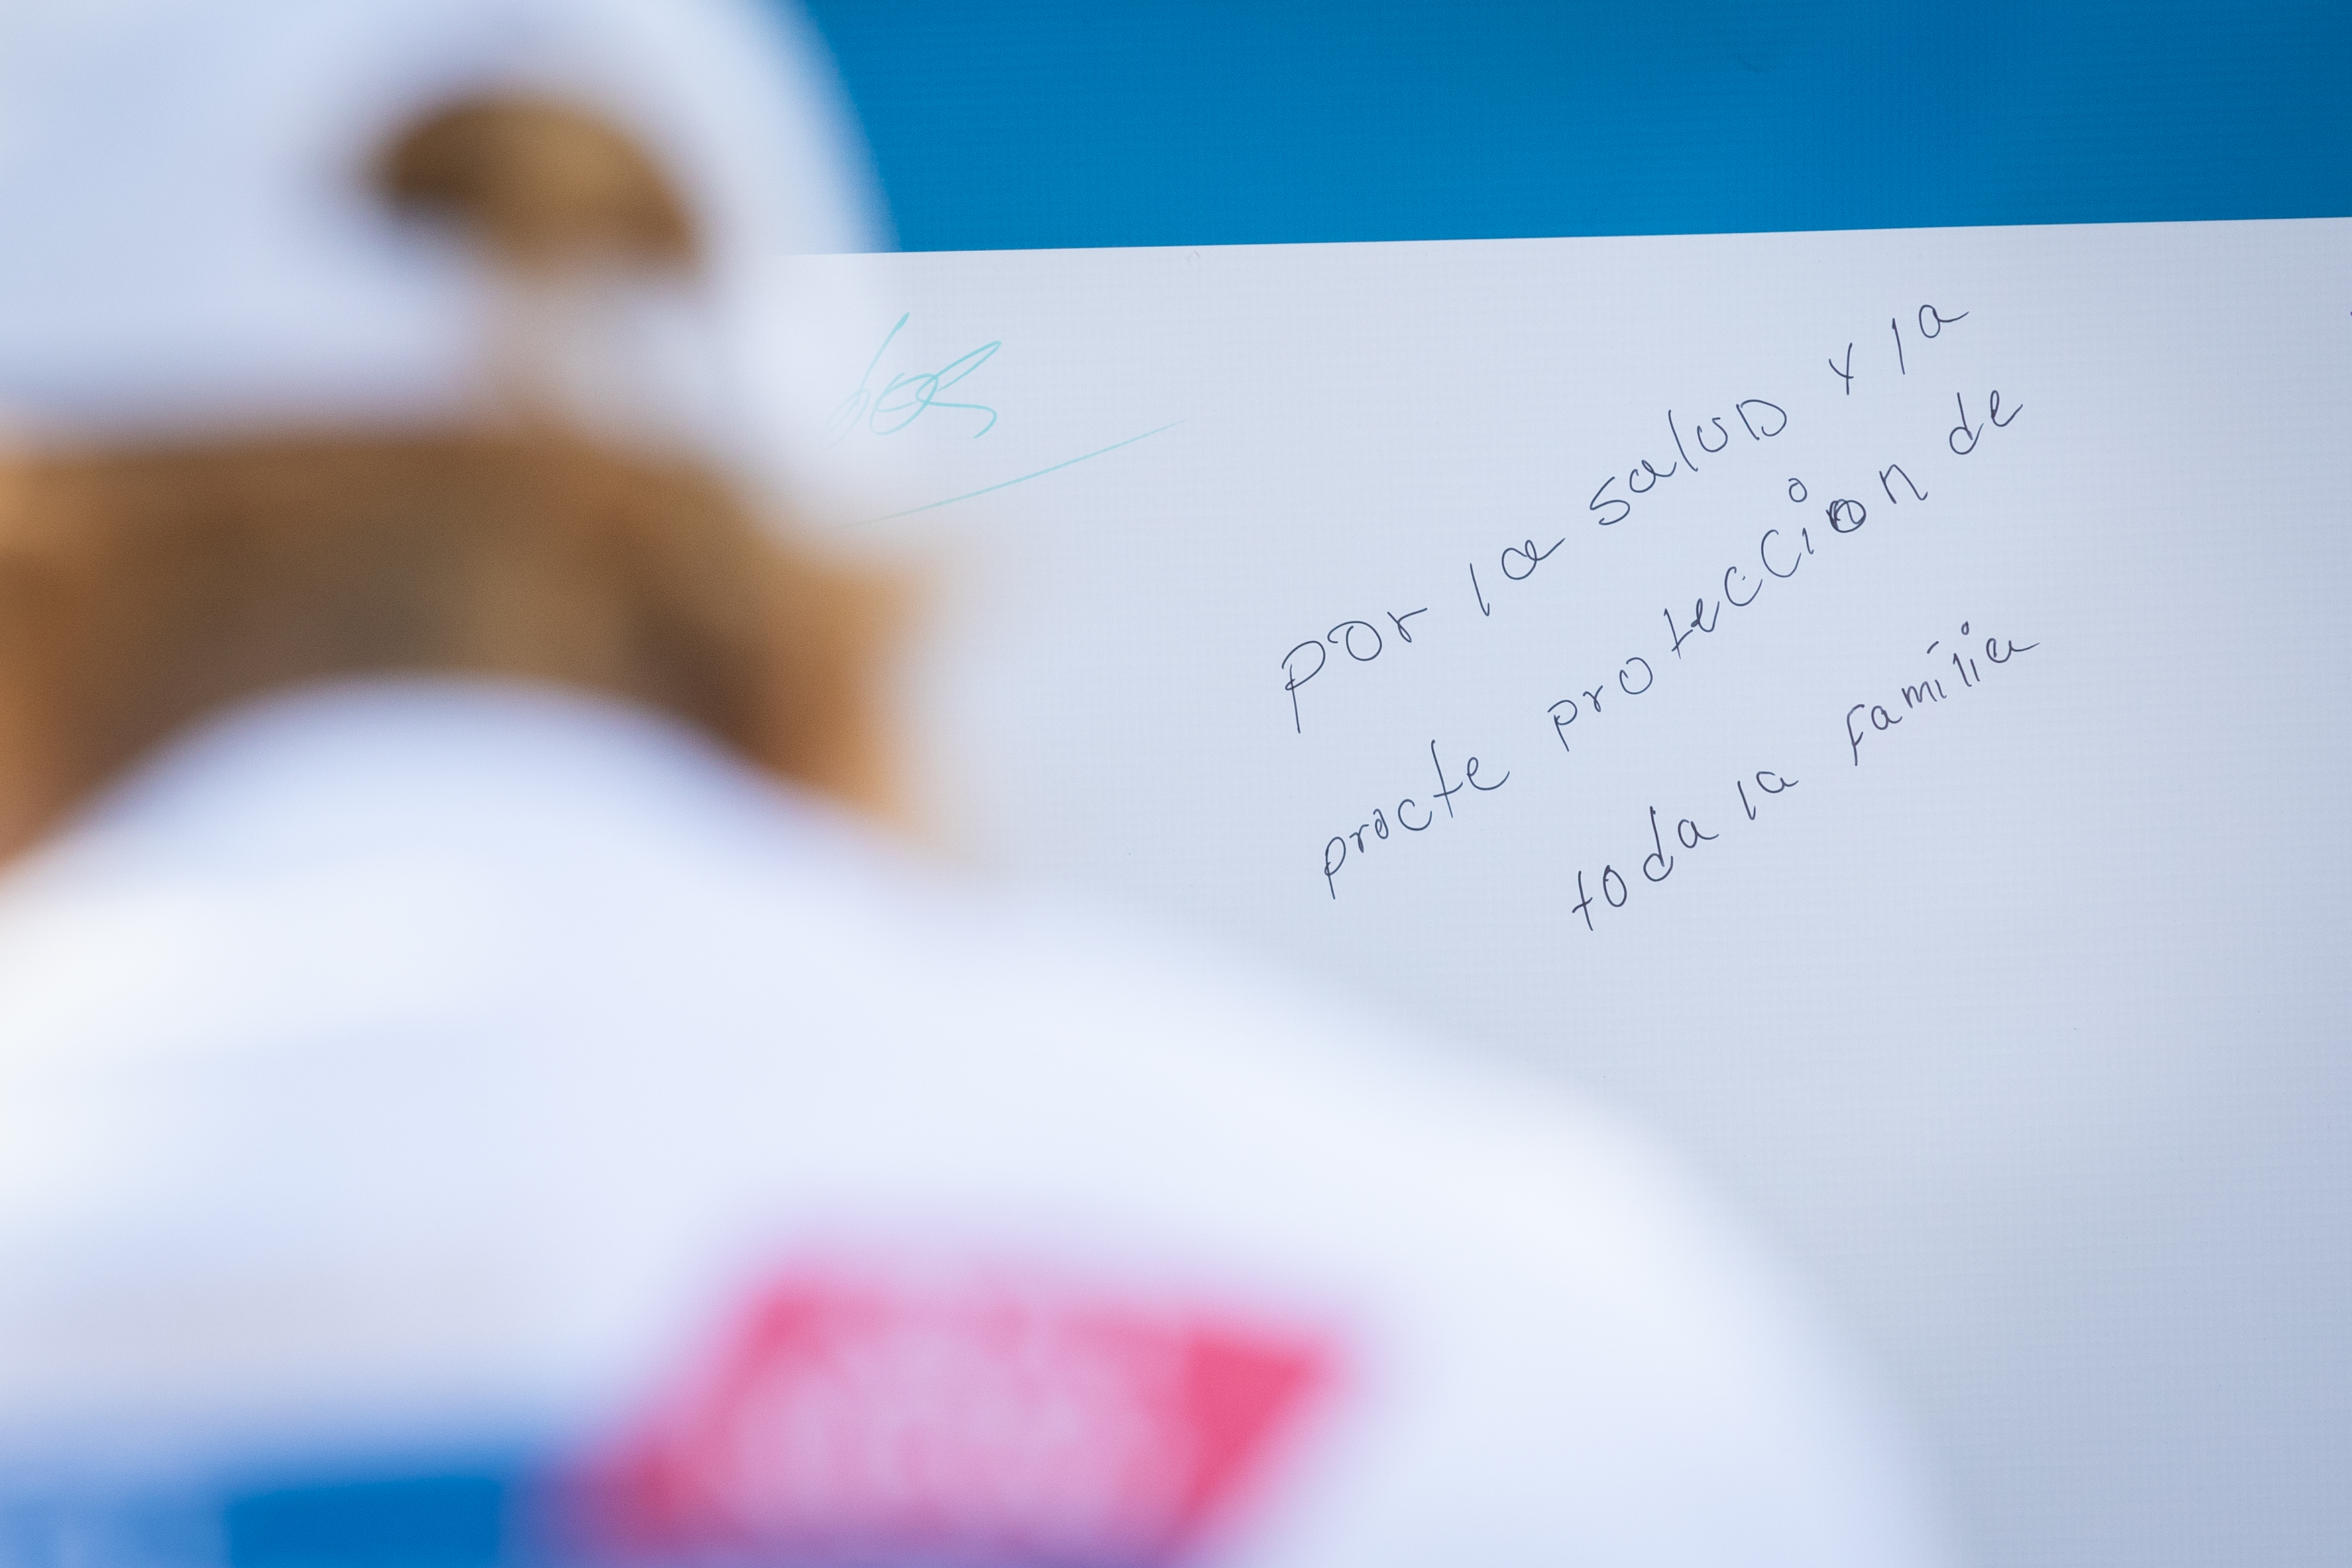 por la saluD y la
procte proteccion de
toda la familia